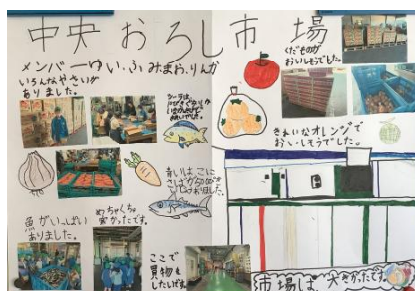 中央おろし市場
メンバーゆい・ふみ・まわ・りんか
いろんなやさいが
ありました。
くだものが
おいしそうでした。
きれいなオレンジで
おいしそうでした。
青いはこに
魚がいっぱい
ありました。
めちゃくちゃ
ここで
買物を
したいです。
市場は、大きかったです。